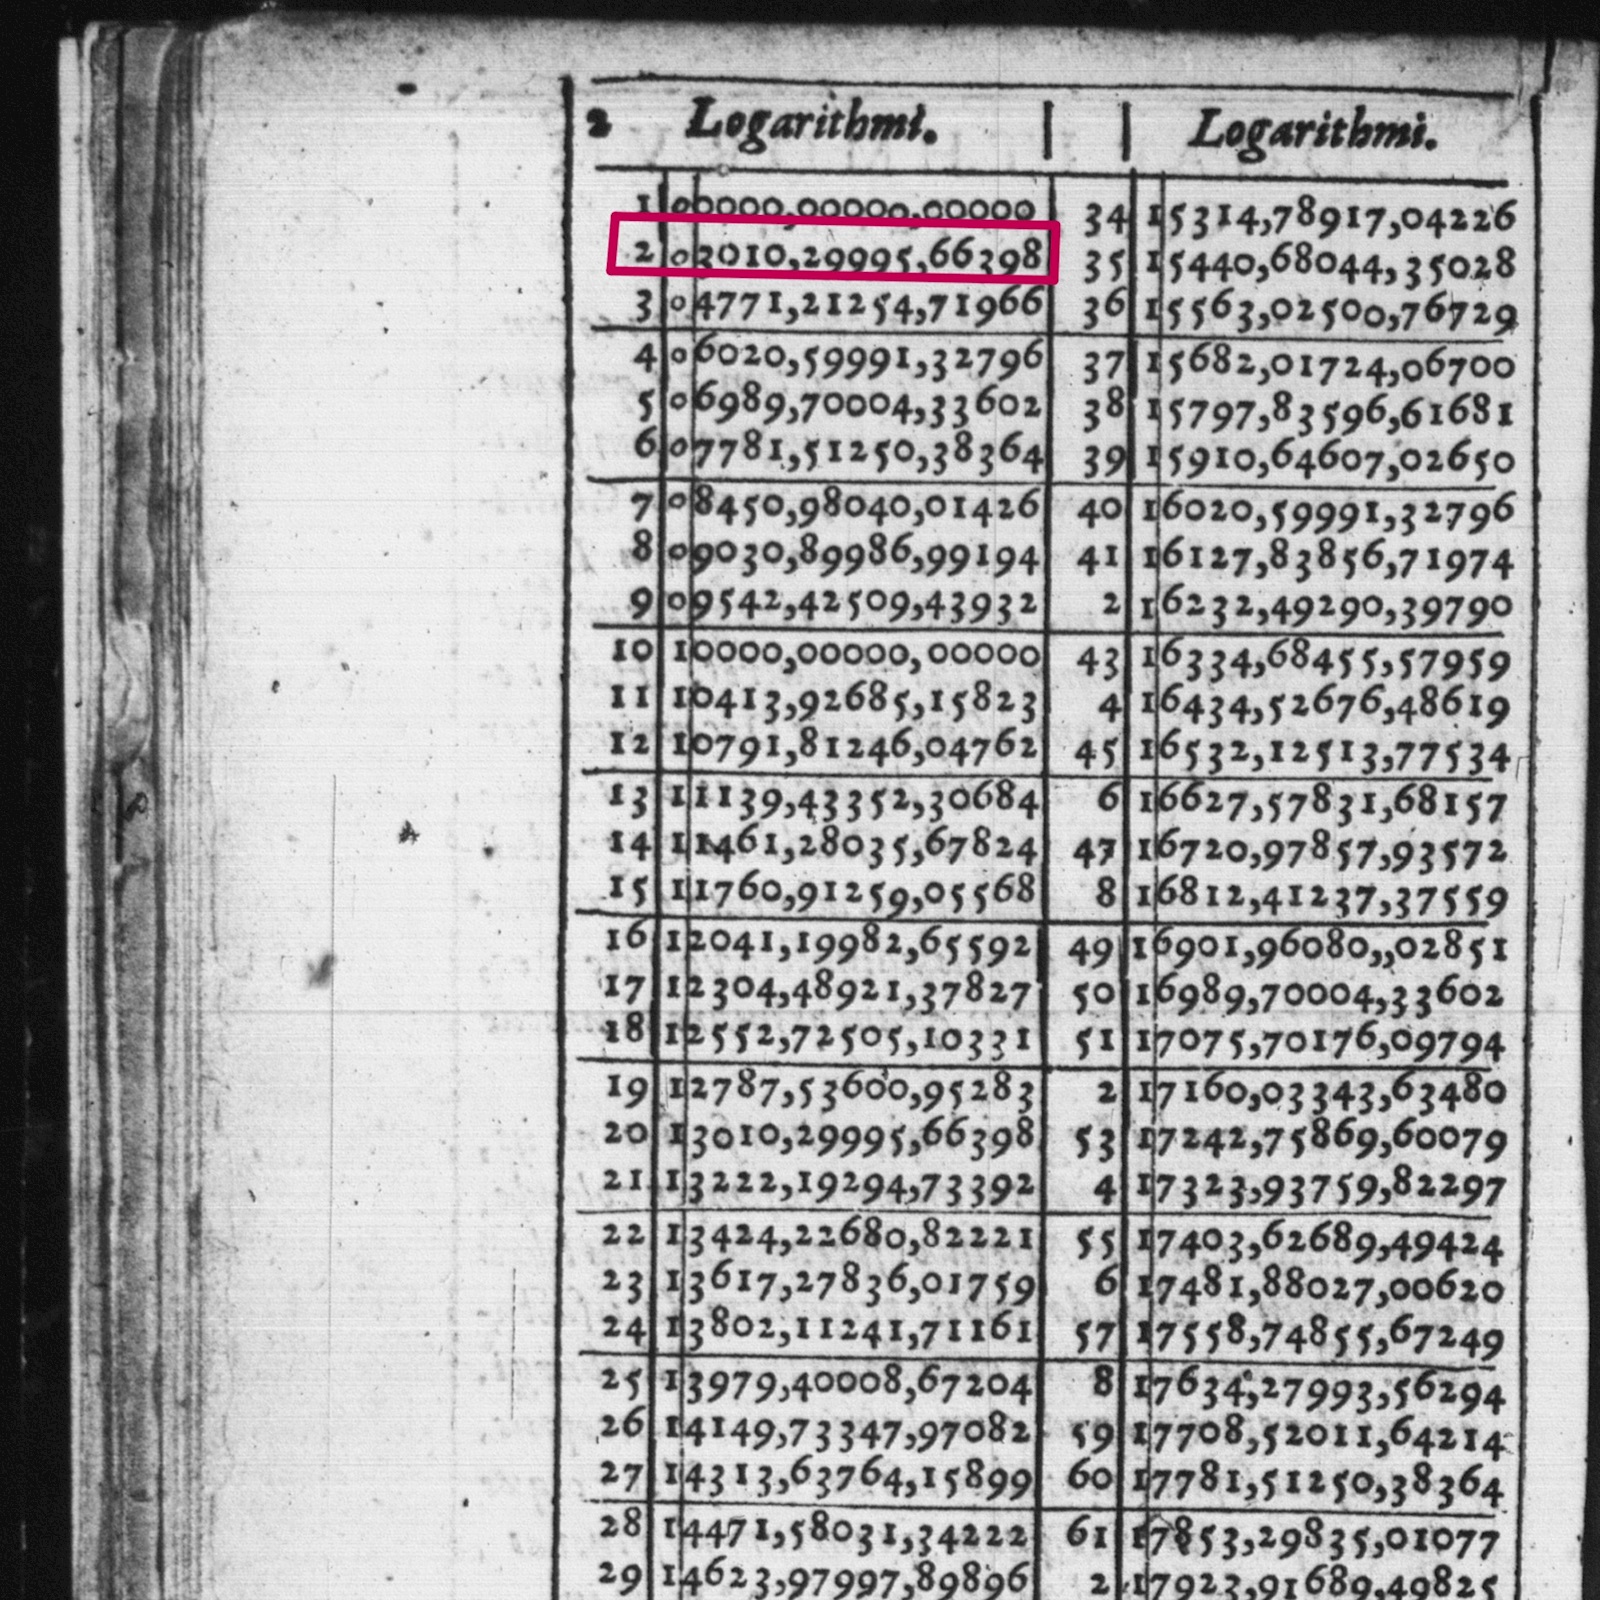 2 Logarithmi. Logarithmi.
1 00000,00000,00000 34 15314,78917,04226
2 03010,29995,66398 35 15440,68044,35028
3 04771,21254,71966 36 15563,02500,76729
4 06020,59991,32796 37 15682,01724,06700
5 06989,70004,33602 38 15797,83596,61681
6 07781,51250,38364 39 15910,64607,02650
7 08450,98040,01426 40 16020,59991,32796
8 09030,89986,99194 41 16127,83856,71974
9 09542,42509,43932 2 16232,49290,39790
10 10000,00000,00000 43 16334,68455,57959
11 10413,92685,15823 4 16434,52676,48619
12 10791,81246,04762 45 16532,12513,77534
13 11139,43352,30684 6 16627,57831,68157
14 11461,28035,67824 47 16720,97857,93572
15 11760,91259,05568 8 16812,41237,37559
16 12041,19982,65592 49 16901,96080,,02851
17 12304,48921,37827 50 16989,70004,33602
18 12552,72505,10331 51 17075,70176,09794
19 12787,53600,95283 2 17160,03343,63480
20 13010,29995,66398 53 17242,75869,60079
21 13222,19294,73392 4 17323,93759,82297
22 13424,22680,82221 55 17403,62689,49424
23 13617,27836,01759 6 17481,88027,00620
24 13802,11241,71161 57 17558,74855,67249
25 13979,40008,67204 8 17634,27993,56294
26 14149,73347,97082 59 17708,52011,64214
27 14313,63764,15899 60 17781,51250,38364
28 14471,58031,34222 61 17853,29835,01077
29 14623,97997,89896 2 17923,91689,49825